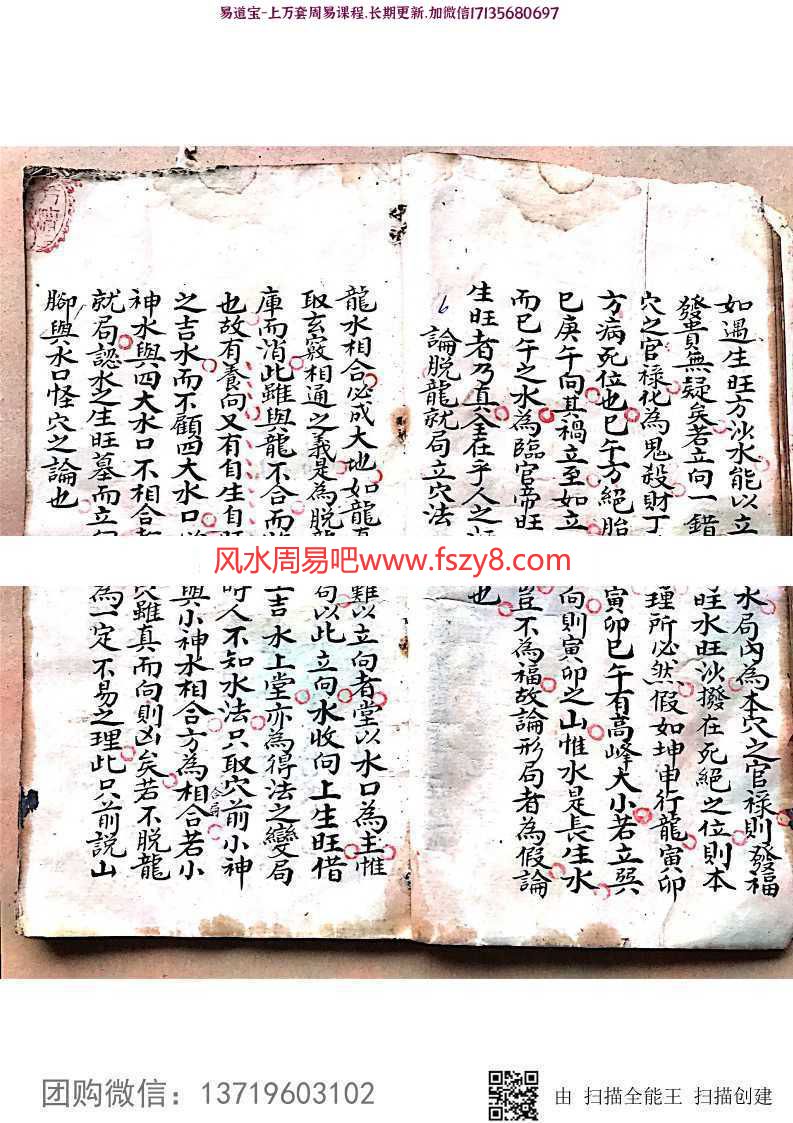 易道宝-上万套周易课程.长期更新.加微信17135680697
如遇生旺方沙水能以立
水局內為本穴之官禄則發福
發貴無疑矣若立向一錯
旺水旺沙撥在死絕之位則本
穴之官禄化為鬼殺財丁
理所必然假如坤申行龍寅卯
方病死位也巳午方絕胎
寅卯巳午有高峰大小若立巽
巳庚午向其禍立至如立
向則寅卯之山惟水是長生水
而巳午之水為臨官帝旺
豈不為福故論形局者為假論
生旺者乃真全在乎人之
也
6 論脫龍就局立穴法
龍水相合必成大地如龍
難以立向者堂以水口為主惟
取玄竅相通之義是為脫龍
向以此立向水收向上生旺借
庫而消此雖與龍不合而
吉水上堂亦為得法之變局
也故有養向又有自生自旺
時人不知水法只取穴前小神
之吉水而不顧四大水口
與小神水相合方為相合若小
神水與四大水口不相合
穴雖真而向則凶矣若不脫龍
就局認水之生旺墓而立向
為一定不易之理此只前說山
腳與水口怪穴之論也
合局
风水周易吧www.fszy8.com
团购微信：13719603102
由 扫描全能王 扫描创建